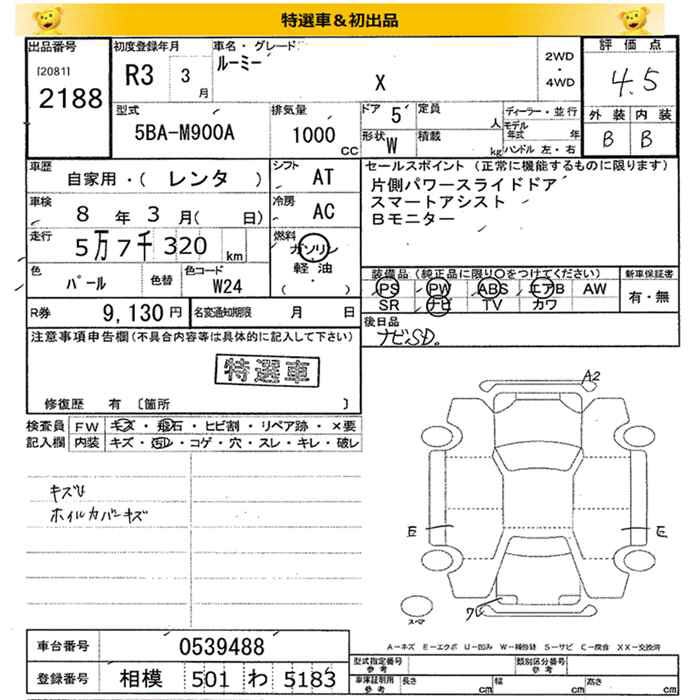 特選車&初出品
出品番号 初度登録年月 車名・グレード 2WD・4WD 評価点
[2081] R3 3月 ルーミー 4.5
2188 X
型式 排気量 ドア 5 定員 人 ディーラー・並行 外装 内装
5BA-M900A 1000 CC 形状 W 積載 kg モデル年式 年 B B
ハンドル 左・右
車歴 シフト セールスポイント (正常に機能するものに限ります)
自家用・( レンタ ) AT 片側パワースライドドア
車検 冷房 スマートアシスト
8年 3月( 日) AC Bモニター
走行 燃料
5万7千320 km ガソリン
軽油
( ・ )
色 色替 色コード 装備品 (純正品に限り○をつけてください) 新車保証書
パール W24 PS PW ABS エアB AW 有・無
SR ナビ TV カワ
R券 9,130円 名変通知期限 月 日 後日品
ナビSD。
注意事項申告欄(不具合内容等は具体的に記入して下さい)
特選車
修復歴 有 [箇所 ]
A2
検査員 FW キズ・飛石・ヒビ割・リペア跡・×要
記入欄 内装 キズ・汚レ・コゲ・穴・スレ・キレ・破レ
キズU
ホイルカバーキズ
E E
スペア
車台番号 0539488
A-キズ E-エクボ U-凹み W-補修跡 S-サビ C-腐食 XX-交換済
登録番号 相模 501 わ 5183
型式指定番号 参考 類別区分番号 参考
車庫証明用 参考 長さ cm 幅 cm 高さ cm